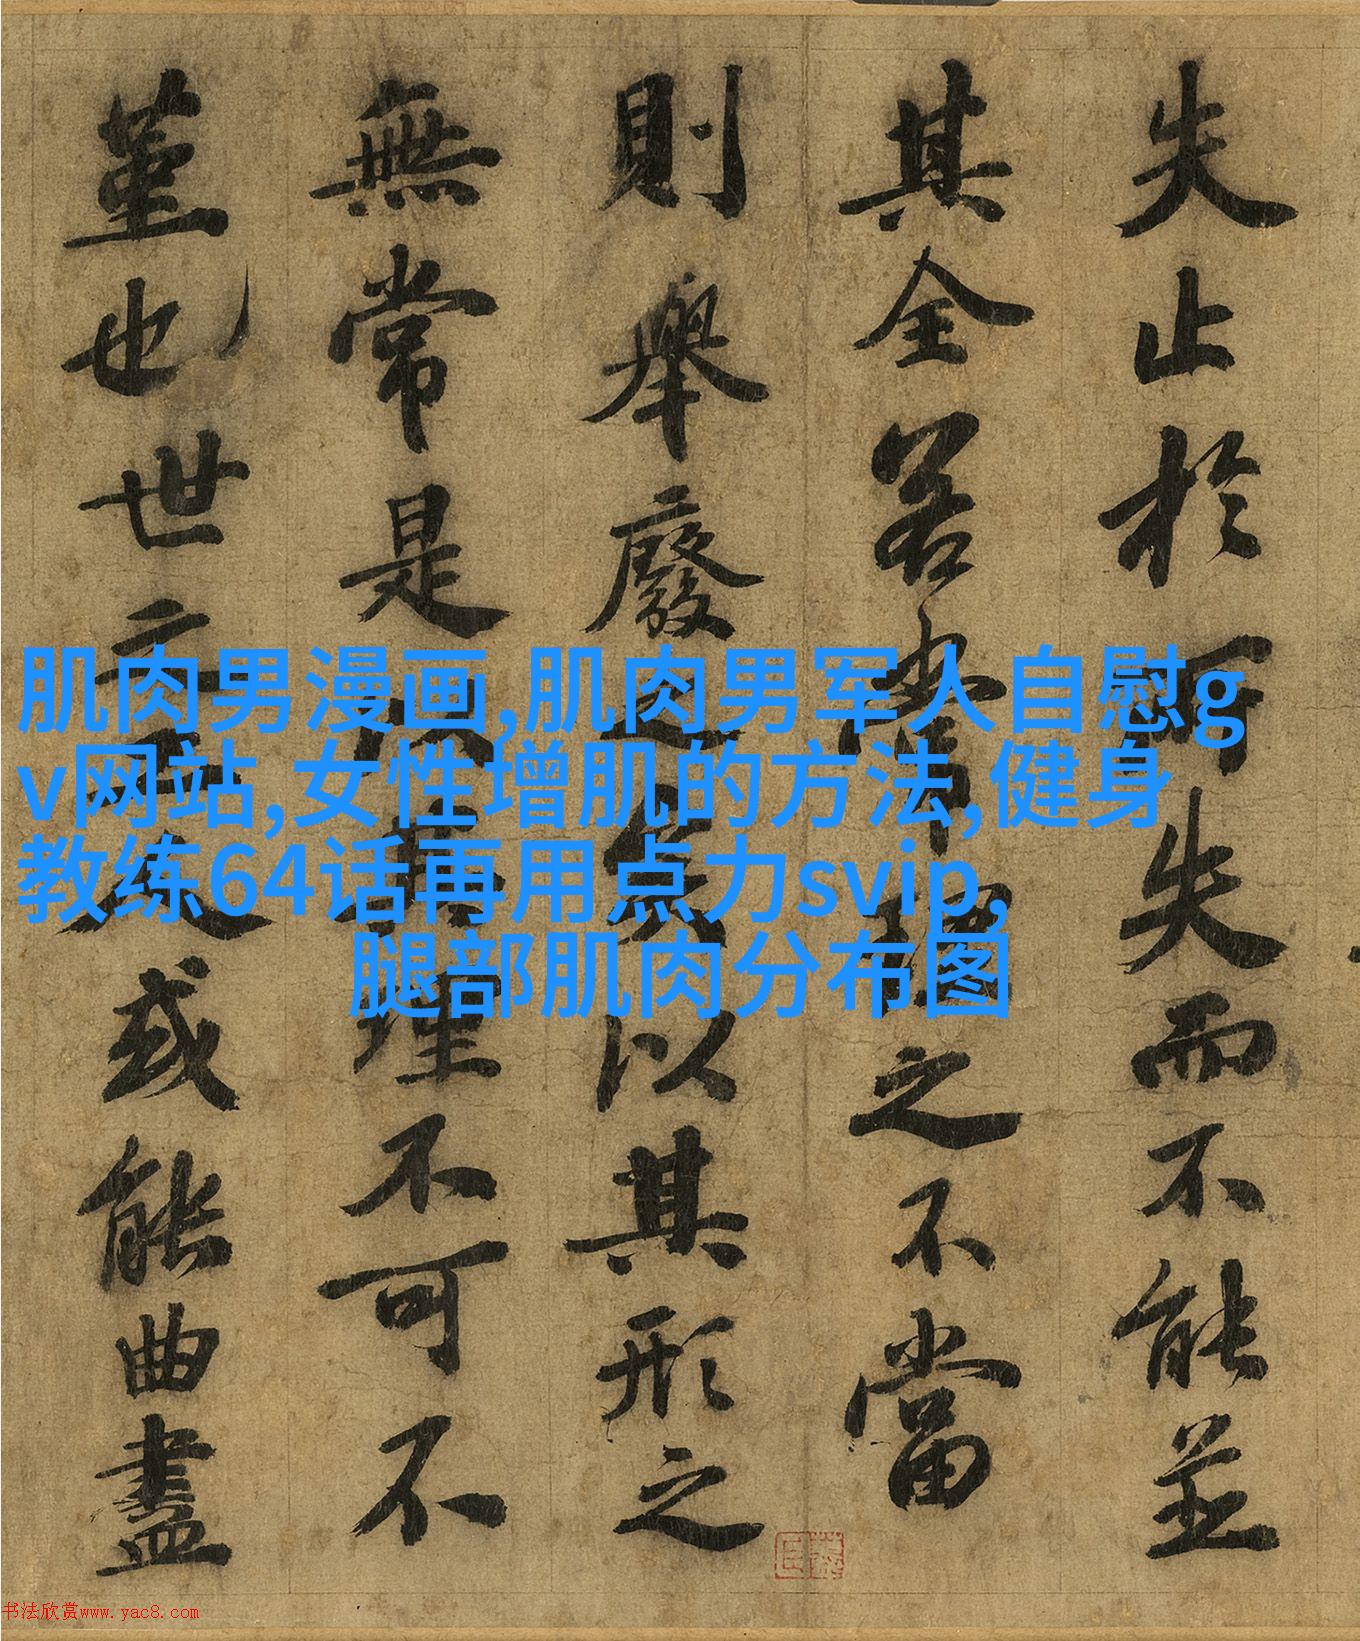 失止於所失而不能並
其全若常理之不當
則舉廢之矣以其形之
無常是以其理不可不
堇也世之工人或能曲盡
肌肉男漫画,肌肉男军人自慰g
v网站,女性增肌的方法,健身
教练64话再用点力svip,
腿部肌肉分布图
书法欣赏www.yac8.com